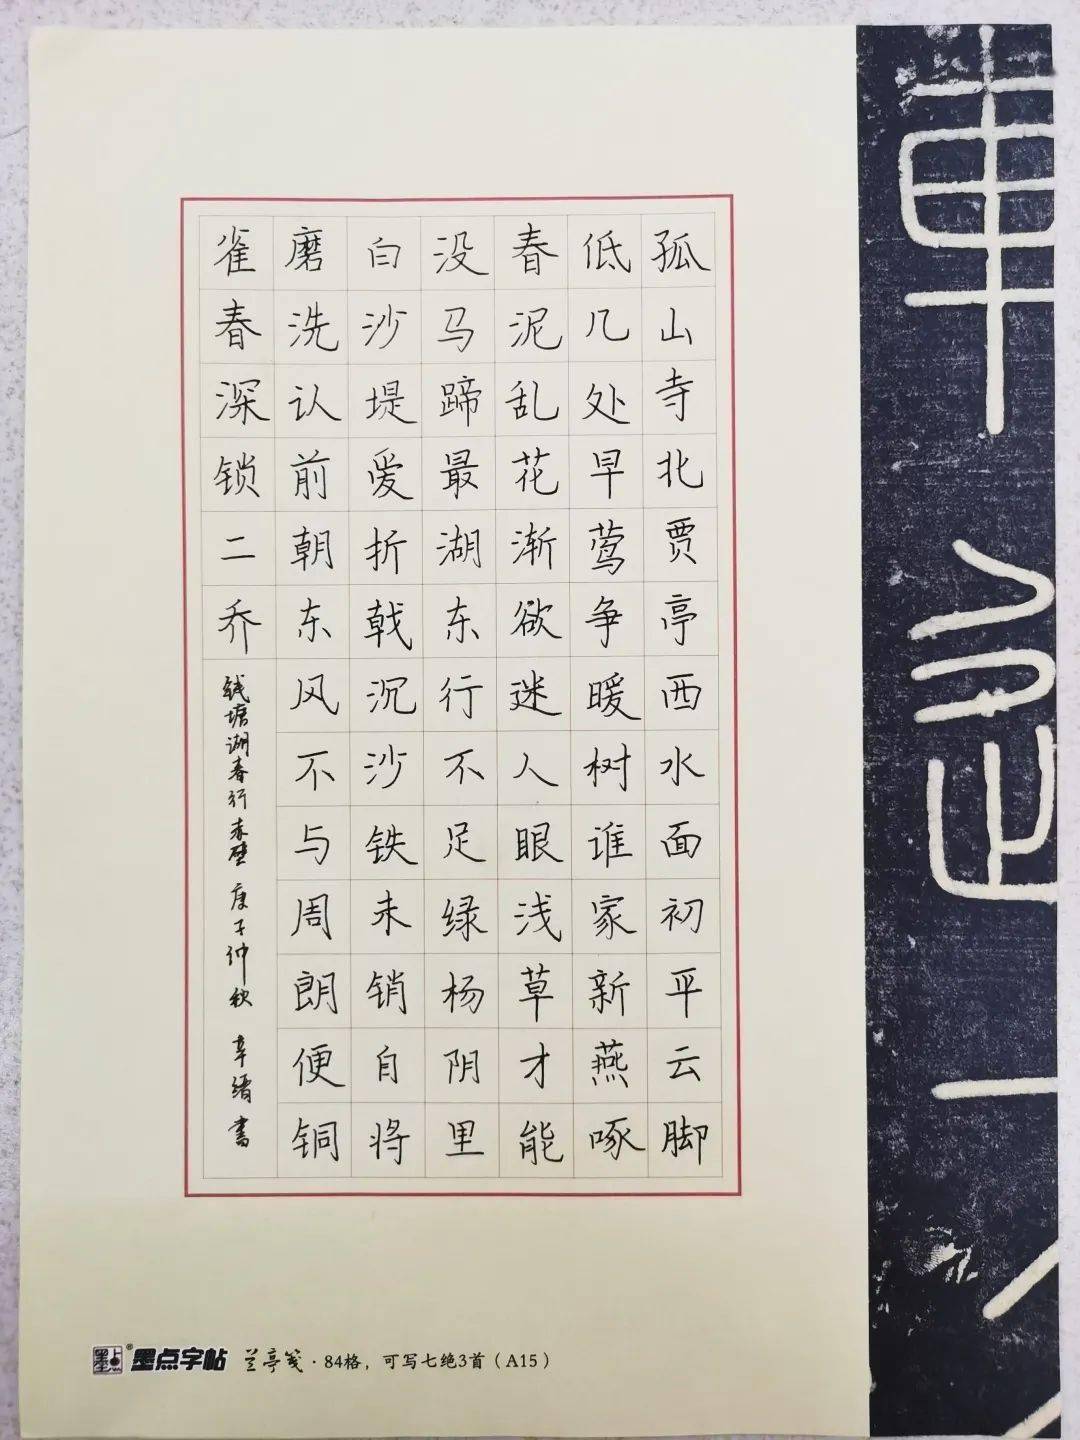 孤山寺北贾亭西水面初平云脚
低几处早莺争暖树谁家新燕啄
春泥乱花渐欲迷人眼浅草才能
没马蹄最湖东行不足绿杨阴里
白沙堤爱折戟沉沙铁未销自将
磨洗认前朝东风不与周朗便铜
雀春深锁二乔
钱塘湖春行 赤壁 庚子仲秋 辛缙书
墨点字帖 兰亭笺·84格，可写七绝3首（A15）